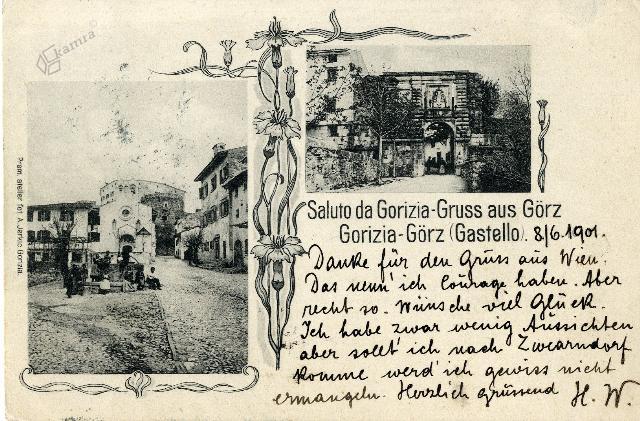 kamra
Prem. atelier fot. A. Jerkic Gorizia.
Saluto da Gorizia-Gruss aus Görz
Gorizia-Görz (Gastello). 8/6. 1901.
Danke für den Gruss aus Wien.
Das nenn' ich Courage haben. Aber
recht so. Wünsche viel Glück.
Ich habe zwar wenig Aussichten
aber sollt' ich nach Zwerndorf
komme werd' ich gewiss nicht
ermangeln. Herzlich grüssend H. W.